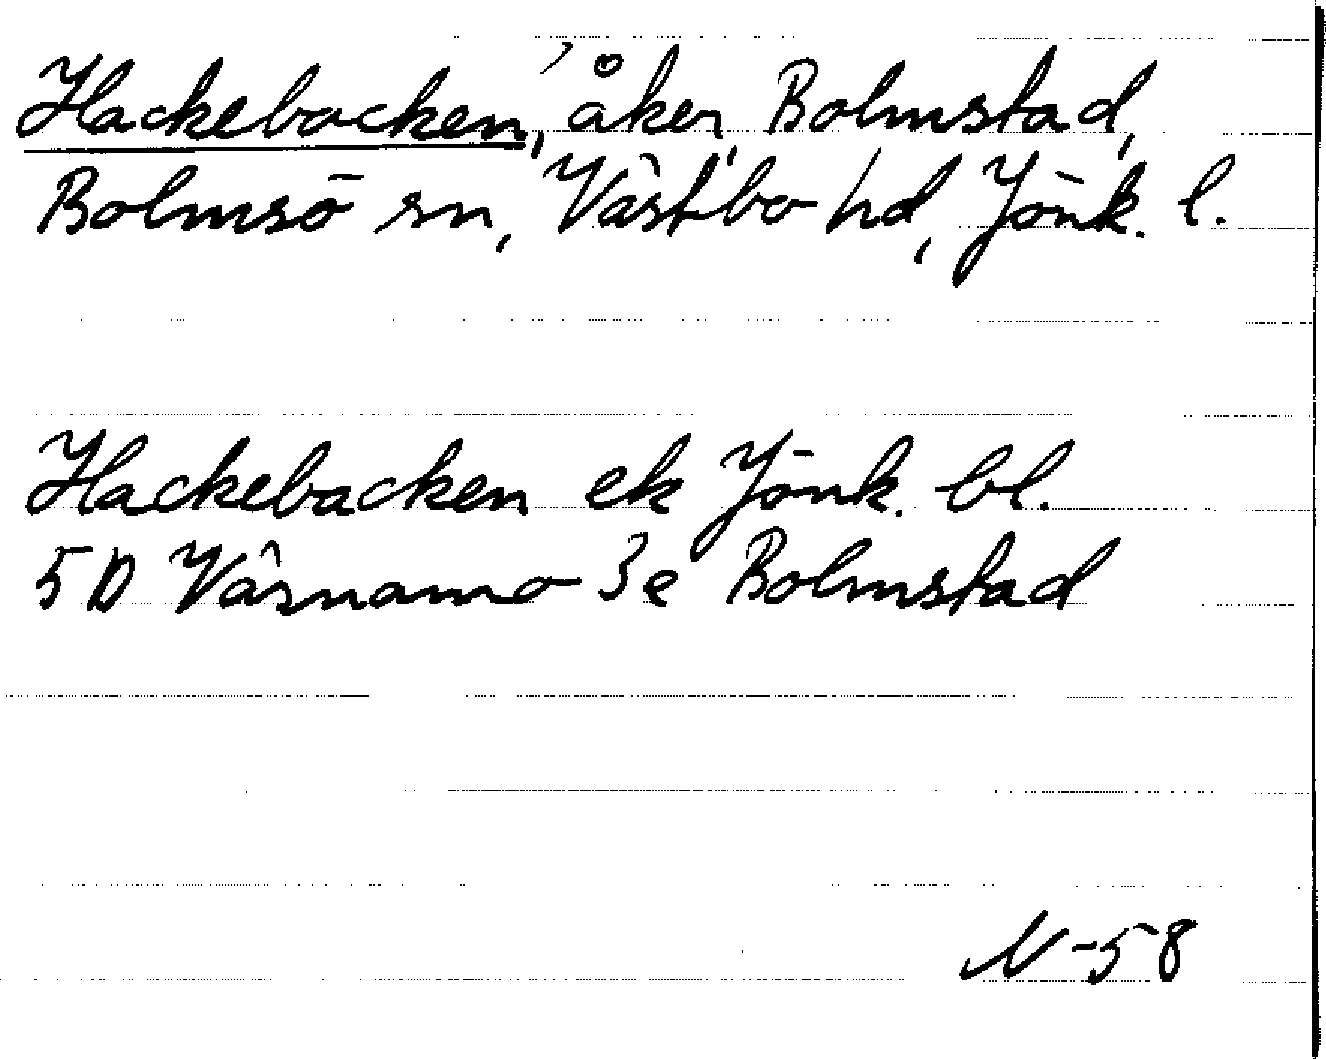 Hackebacken, åker, Bolmstad,
Bolmsö sn, Västbo hd, Jönk. l.
Hackebacken ek Jönk. bl.
5D Värnamo 3e Bolmstad
N-58